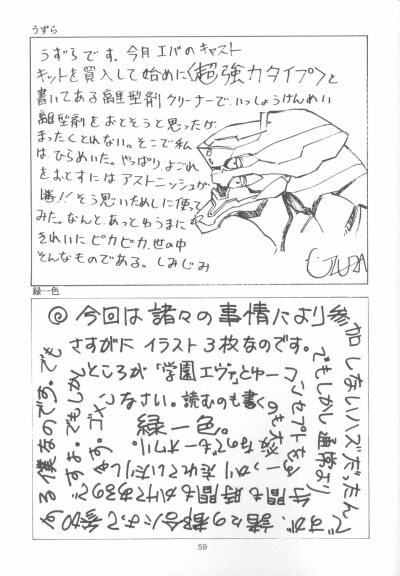 うずら
うずらです。今月エバのキャスト
キットを買入して始めに〈超強力タイプ〉と
書いてある離型剤クリーナーで、いっしょうけんめい
離型剤をおとそうと思ったが
まったくとれない。そこで私
は、ひらめいた。やっぱり、よごれ
をおとすにはアストニッシュが
一番!! そう思いためしに使って
みた。なんと、あっとゆうまに
きれいにピカピカ、世の中
そんなものである。しみじみ
UZURA
緑一色
◎今回は諸々の事情により参
加しないハズだったん
ですが、諸々の都合によって参加
する僕なのです。でも
さすがに イラスト3枚なのです。
ところが「学園エヴァ」とゆー
コンセプトを
でもしかし通常より
待間も時間もかけてあるので
すよ。でもしかし
ます。ゴメン
なさい。読むのも書く
のも大変なのでもオワリ。
緑一色。
59